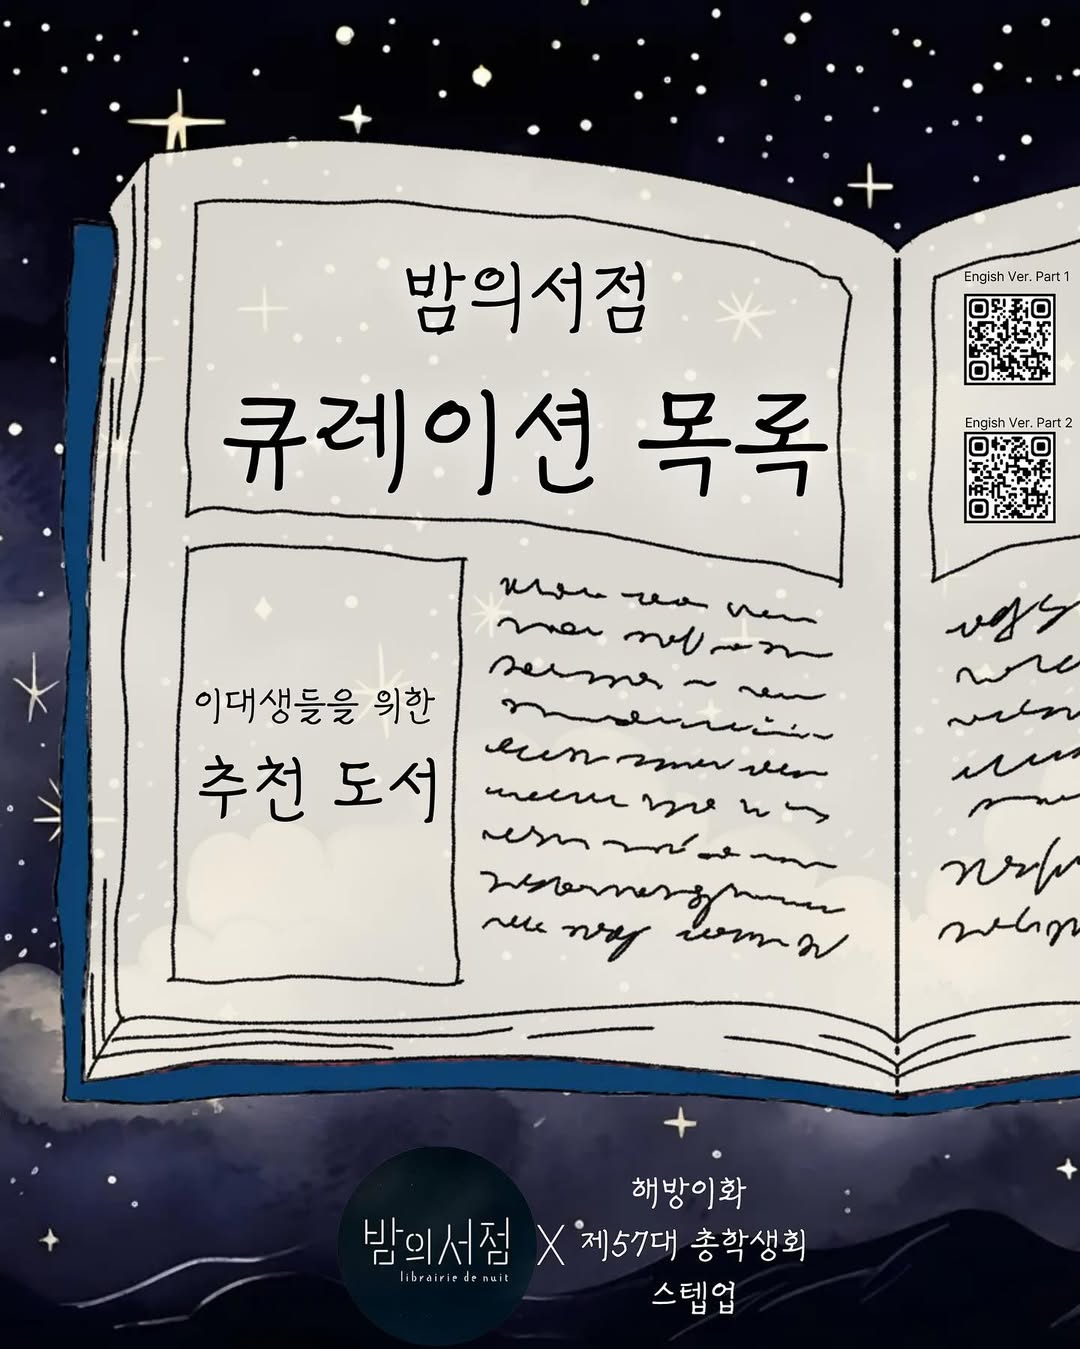 밤의서점
큐레이션 목록
이대생들을 위한
추천 도서
Engish Ver. Part 1
Engish Ver. Part 2
밤의서점
librairie de nuit
X
해방이화
제57대 총학생회
스텝업